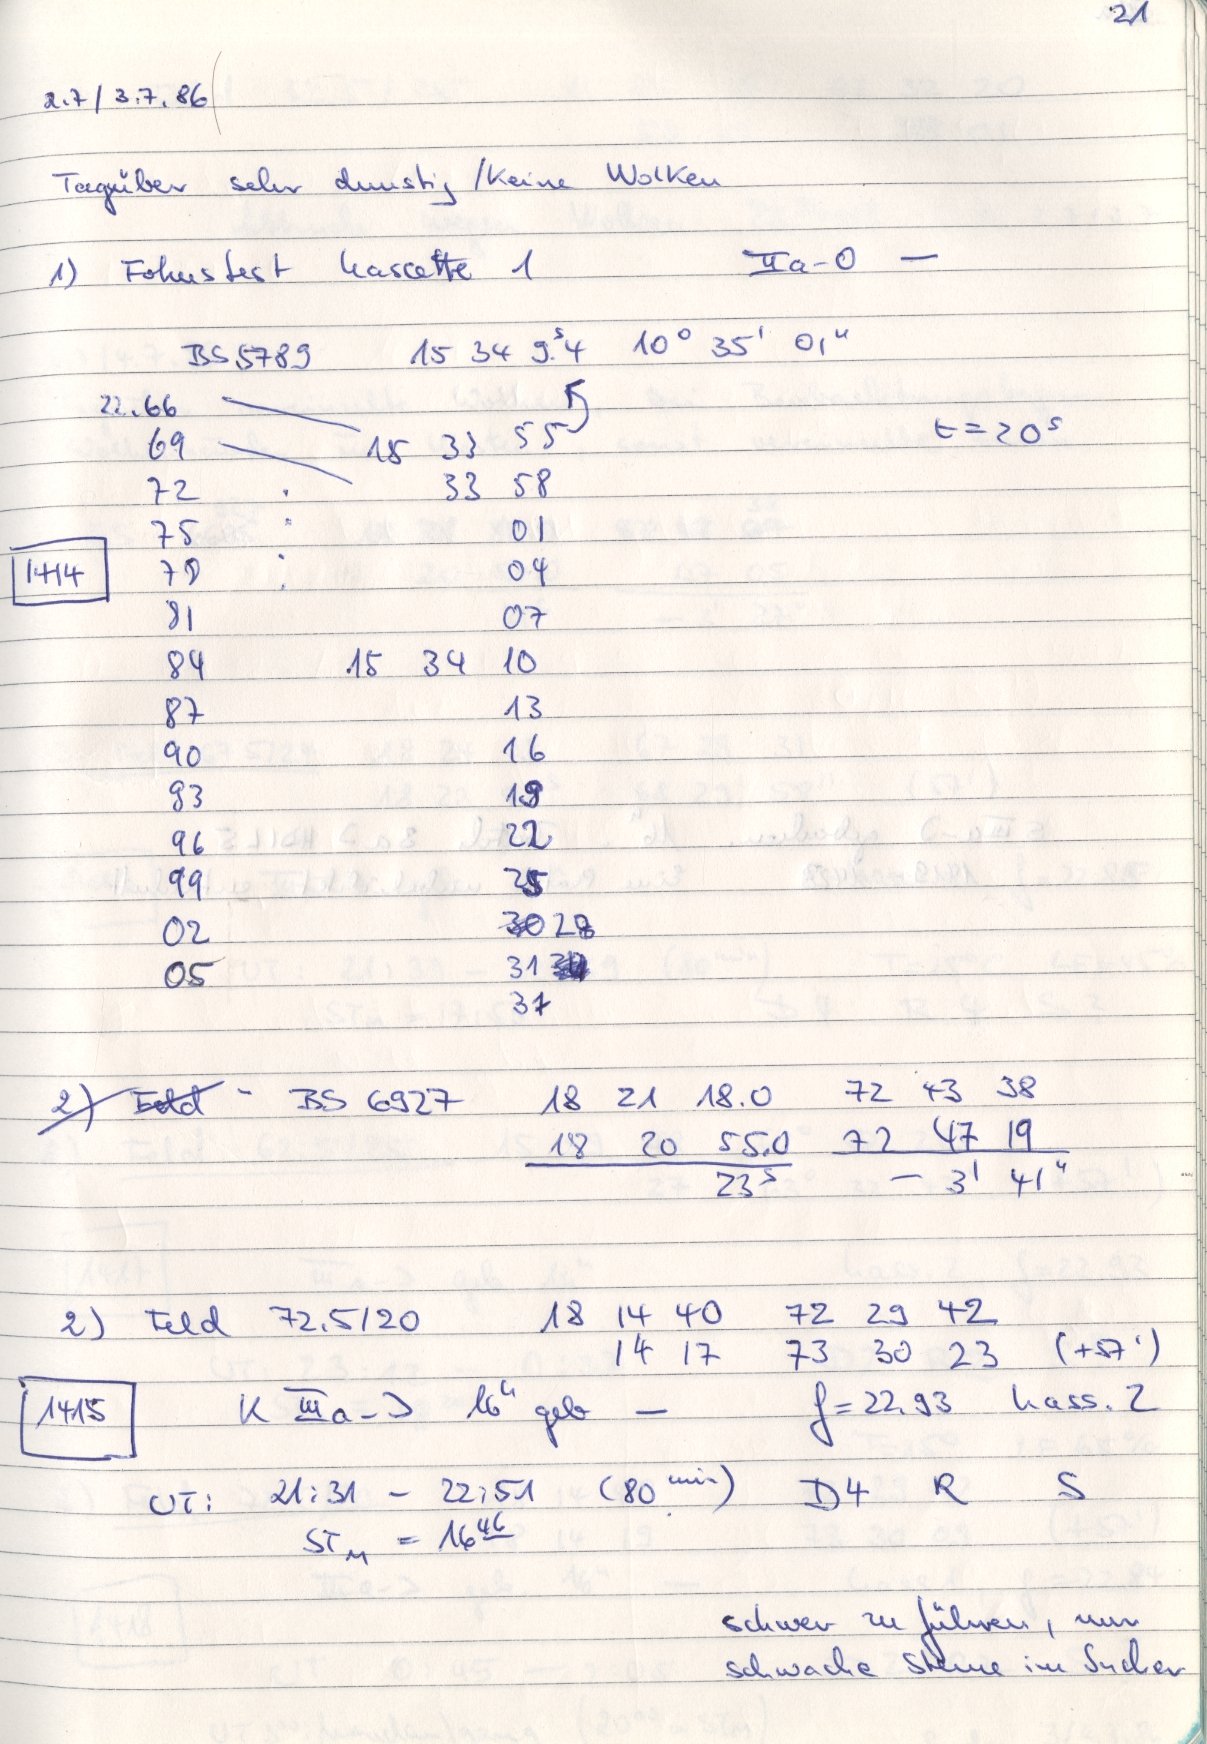 21
2.7/3.7.86
Tagüber sehr dunstig /Keine Wolken
1) Fokustest Kassette 1 IIa-O —
BS 5789 15 34 9.ˢ4 10° 35' 01"
22.66
69 15 33 55 t = 20ˢ
72 33 58
75 01
1414 78 04
81 07
84 15 34 10
87 13
90 16
93 19
96 22
99 25
02 30 28
05 31
37
2) Feld - BS 6927 18 21 18.0 72 43 38
18 20 55.0 72 47 19
23ˢ — 3' 41"
2) Feld 72.5/20 18 14 40 72 29 42
14 17 73 30 23 (+57')
1415 K IIIa-J 16ʰ geb — f = 22.93 Kass. 2
UT: 21:31 - 22:51 (80 min) D4 R S
STM = 16 46
schwer zu führen, nur
schwache Sterne im Sucher